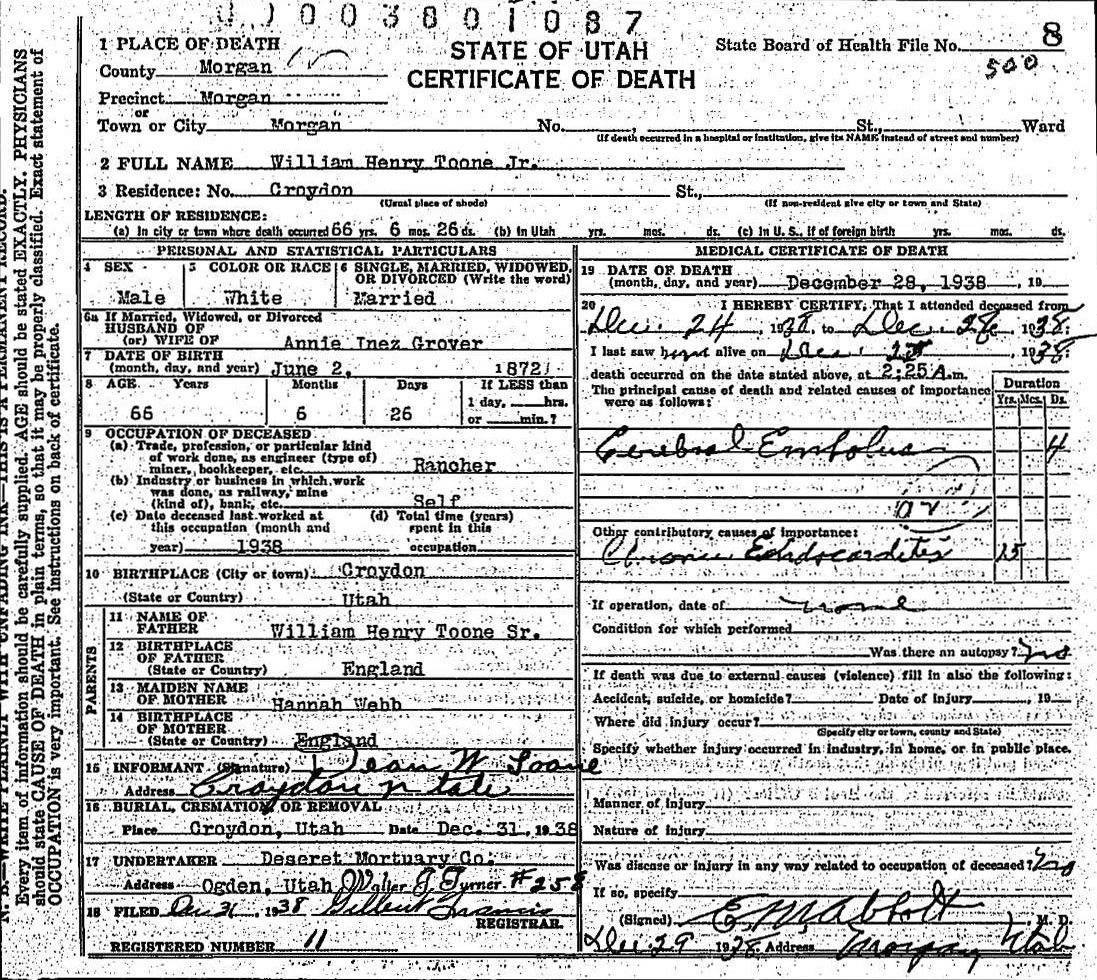 003801087
STATE OF UTAH
CERTIFICATE OF DEATH
State Board of Health File No. 8
500
1 PLACE OF DEATH
County Morgan
Precinct Morgan
or
Town or City Morgan No. , St., Ward
(If death occurred in a hospital or institution, give its NAME instead of street and number)
2 FULL NAME William Henry Toone Jr.
3 Residence: No. Croydon St.,
(Usual place of abode) (If non-resident give city or town and State)
LENGTH OF RESIDENCE:
(a) In city or town where death occurred 66 yrs. 6 mos. 26 ds. (b) In Utah yrs. mos. ds. (c) In U. S., if of foreign birth yrs. mos. ds.
PERSONAL AND STATISTICAL PARTICULARS
4 SEX 5 COLOR OR RACE 6 SINGLE, MARRIED, WIDOWED, OR DIVORCED (Write the word)
Male White Married
6a If Married, Widowed, or Divorced
HUSBAND OF
(or) WIFE OF Annie Inez Grover
7 DATE OF BIRTH
(month, day, and year) June 2, 1872
8 AGE Years Months Days If LESS than
1 day, hrs.
66 6 26 or min.?
9 OCCUPATION OF DECEASED
(a) Trade, profession, or particular kind
of work done, as engineer (type of)
miner, bookkeeper, etc. Rancher
(b) Industry or business in which work
was done, as railway, mine
(kind of), bank, etc. Self
(c) Date deceased last worked at (d) Total time (years)
this occupation (month and spent in this
year) 1938 occupation
10 BIRTHPLACE (City or town) Croydon
(State or Country) Utah
PARENTS
11 NAME OF
FATHER William Henry Toone Sr.
12 BIRTHPLACE
OF FATHER
(State or Country) England
13 MAIDEN NAME
OF MOTHER Hannah Webb
14 BIRTHPLACE
OF MOTHER
(State or Country) England
15 INFORMANT (Signature) Dean W Toone
Address Croydon Utah
16 BURIAL, CREMATION, OR REMOVAL
Place Croydon, Utah Date Dec. 31, 1938
17 UNDERTAKER Deseret Mortuary Co.
Address Ogden, Utah Walter J. Turner #258
18 FILED Dec 31, 1938 Gilbert Francis
REGISTRAR.
REGISTERED NUMBER 11
MEDICAL CERTIFICATE OF DEATH
19 DATE OF DEATH
(month, day, and year) December 28, 1938 , 19
20 I HEREBY CERTIFY, That I attended deceased from
Dec. 24, 1938, to Dec. 28, 1938.
I last saw him alive on Dec. , 1938.
death occurred on the date stated above, at 2:25 A.m.
The principal cause of death and related causes of importance
were as follows:
Duration
Yrs. Mos. Ds.
Cerebral Embolus 4
Other contributory causes of importance:
Chronic Endocarditis 15
If operation, date of none
Condition for which performed
Was there an autopsy? no
If death was due to external causes (violence) fill in also the following:
Accident, suicide, or homicide? Date of injury , 19
Where did injury occur?
(Specify city or town, county and State)
Specify whether injury occurred in industry, in home, or in public place.
Manner of injury
Nature of injury
Was disease or injury in any way related to occupation of deceased? No
If so, specify
(Signed) E M Abbott M. D.
Dec 29 1938 Address Morgan Utah
N. B.—WRITE PLAINLY WITH UNFADING INK—THIS IS A PERMANENT RECORD.
Every item of information should be carefully supplied. AGE should be stated EXACTLY. PHYSICIANS
should state CAUSE OF DEATH in plain terms, so that it may be properly classified. Exact statement of
OCCUPATION is very important. See instructions on back of certificate.